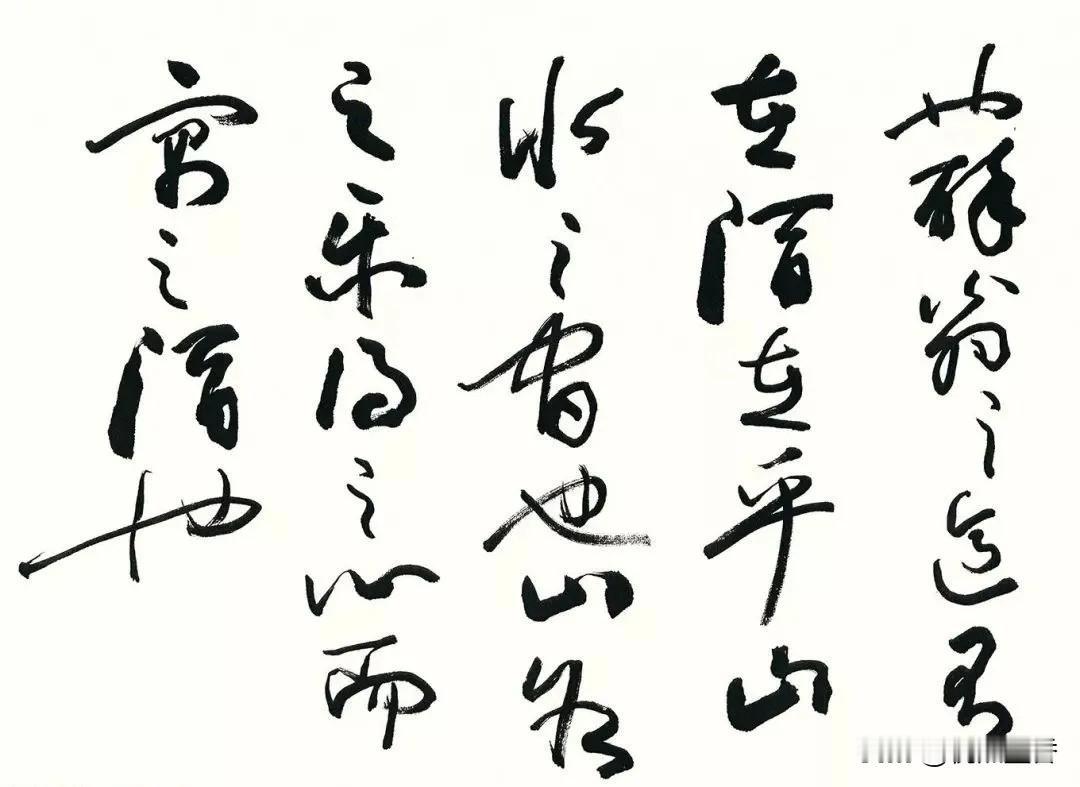 醉翁之意不
在酒在乎山
水之间也山水
之乐得之心而
寓之酒也